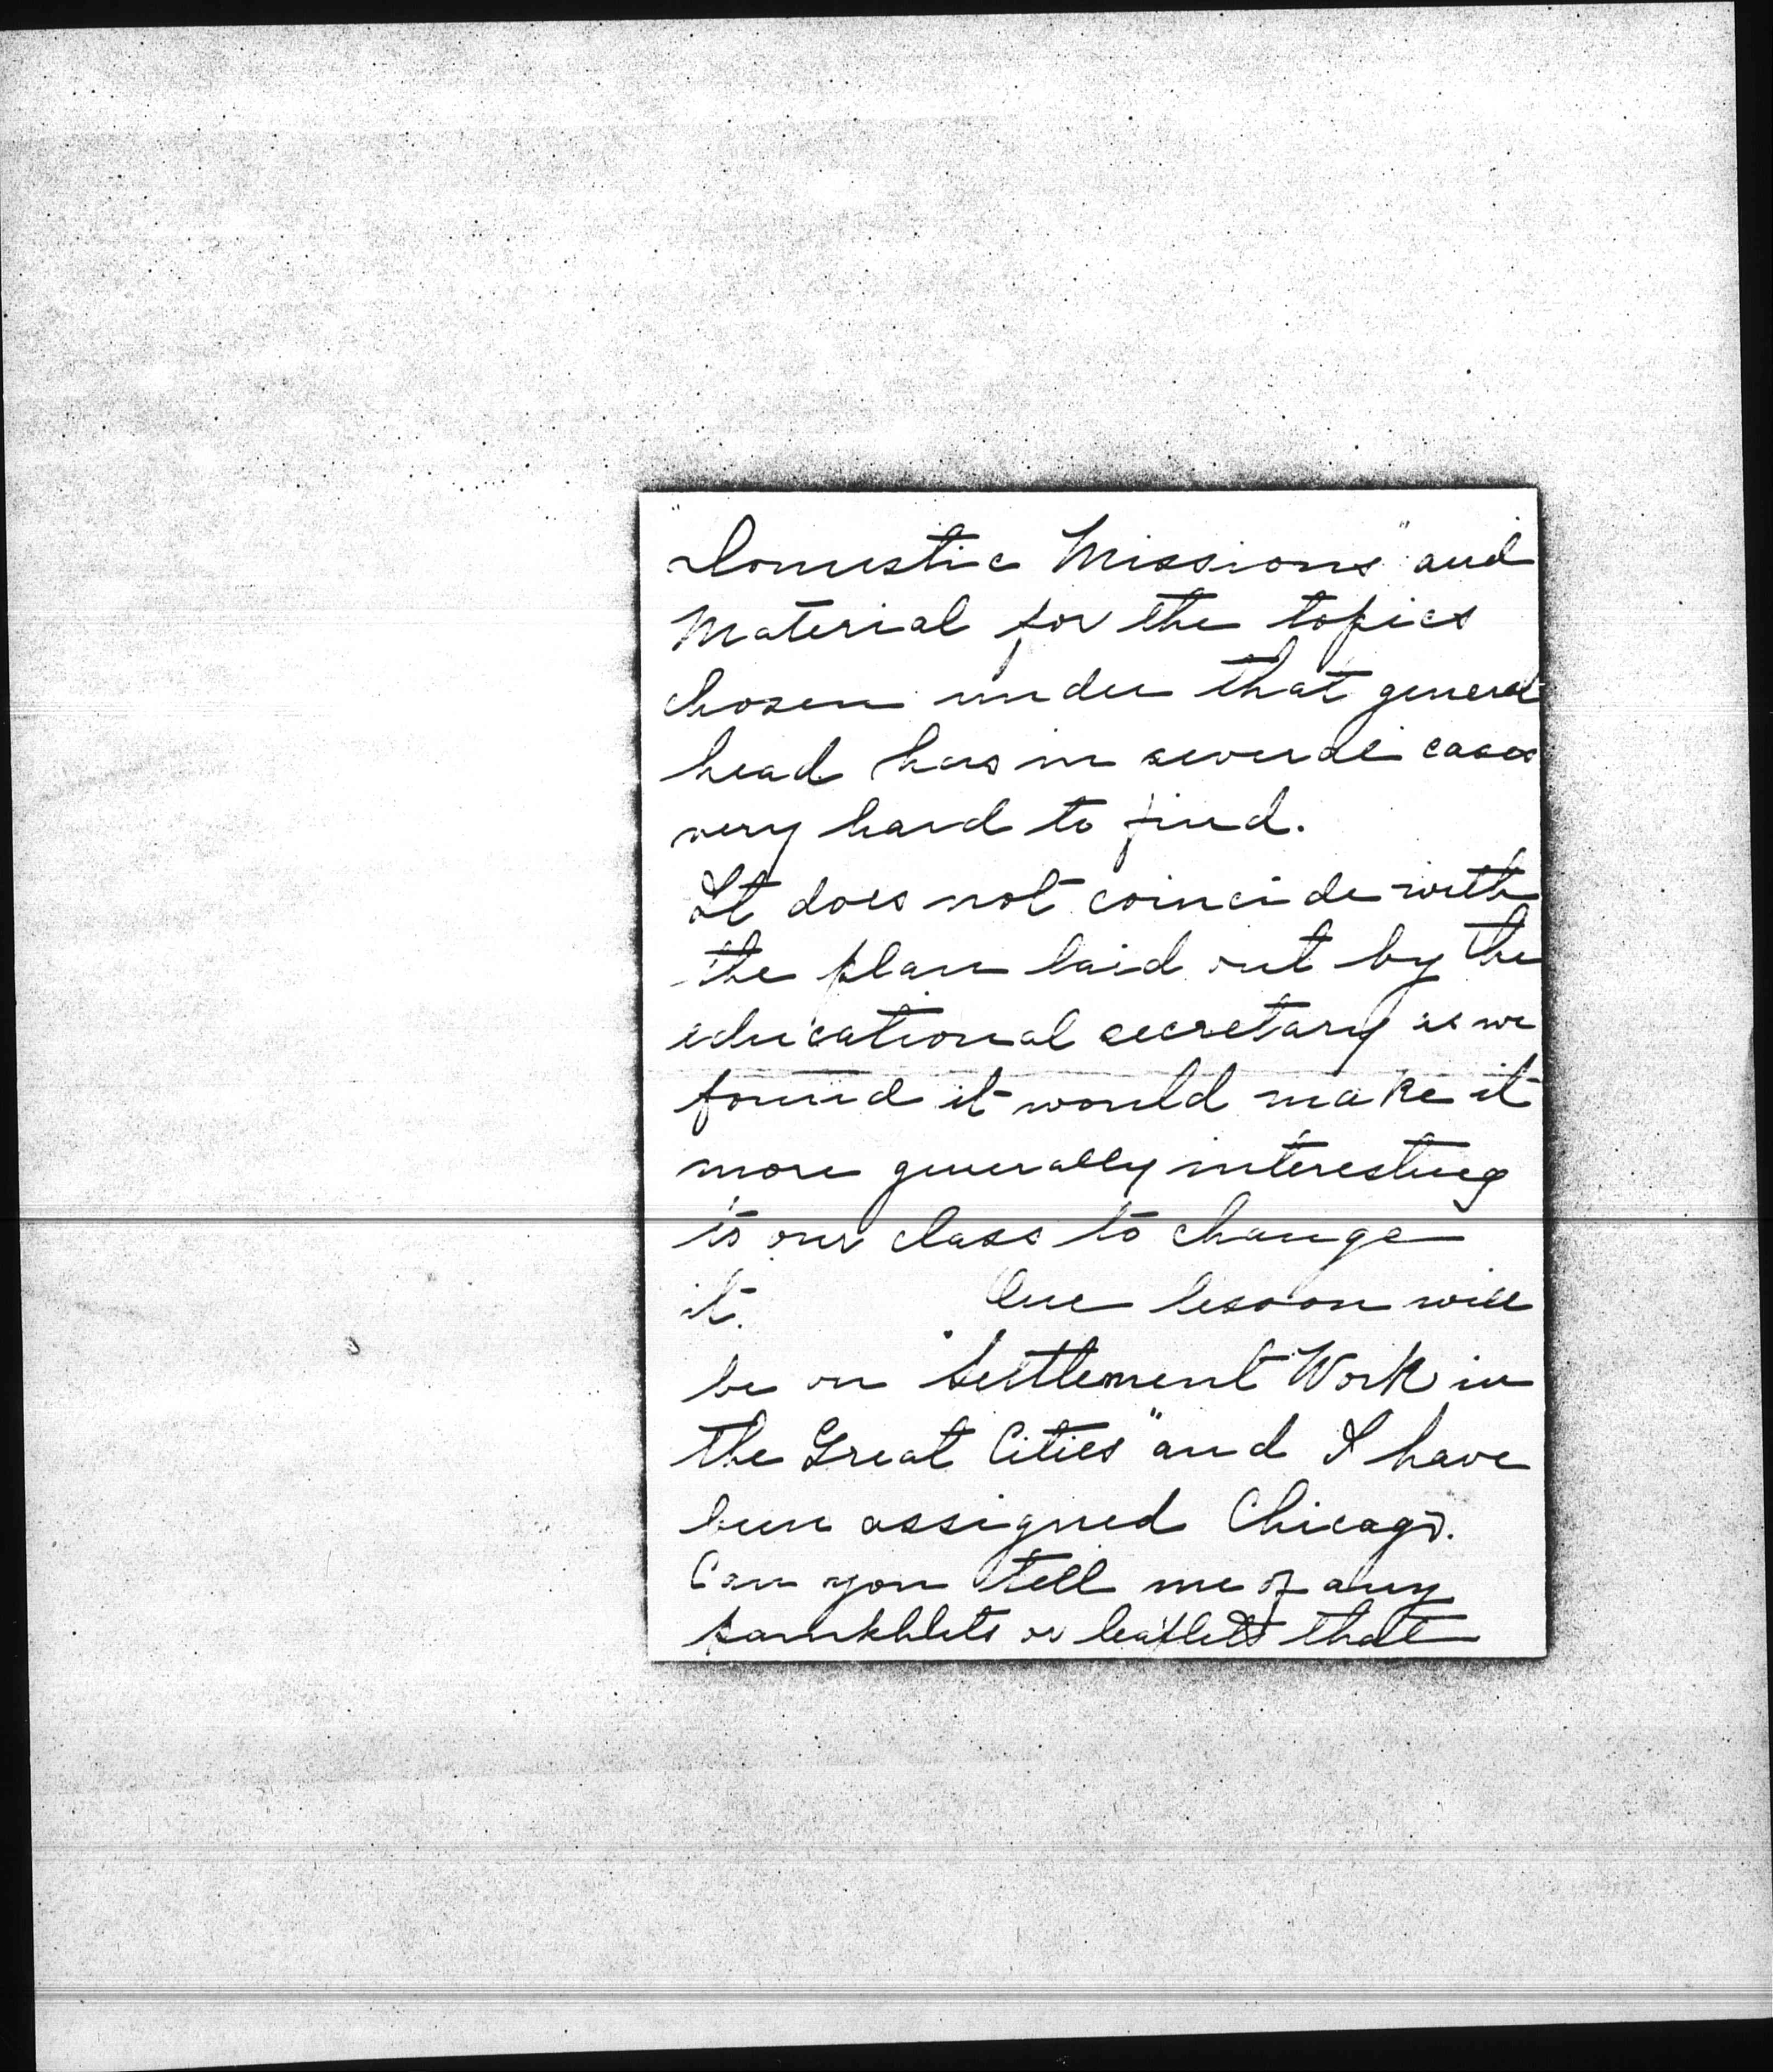 "Domestic Missions" and
Material for the topics
chosen under that general
head has in several cases
very hard to find.
It does not coincide with
the plan laid out by the
educational secretary as we
found it would make it
more generally interesting
to our class to change
it. One lesson will
be on "Settlement Work in
the Great Cities" and I have
been assigned Chicago.
Can you tell me of any
pamphlets or leaflets that